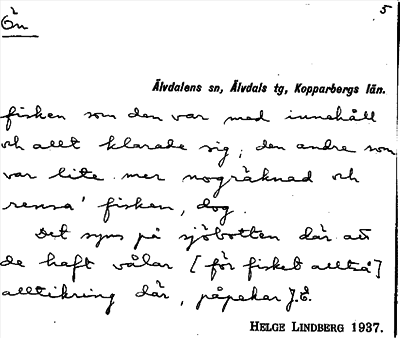 5
Ön
Älvdalens sn, Älvdals tg, Kopparbergs län.
fisken som den var med innehåll
och allt klarade sig; den andre som
var lite mer nogräknad och
rensa' fisken, dog.
Det syns på sjöbotten där att
de haft vålar [för fisket alltså]
alltikring där, påpekar J.E.
HELGE LINDBERG 1937.